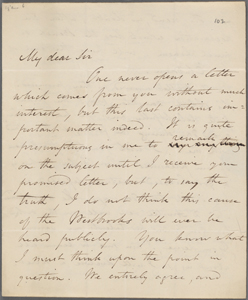 102
My dear Sir
One never opens a letter
which comes from you without much
interest, but this last contains im-
portant matter indeed. It is quite
presumptuous in me to remark
on the subject until I receive your
promised letter, but, to say the
truth, I do not think this cause
of the Westbrooks will ever be
heard publicly. You know what
I must think upon the point in
question. We entirely agree, and